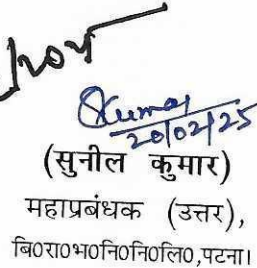 Skumar
20/02/25
(सुनील कुमार)
महाप्रबंधक (उत्तर),
बि0रा0भ0नि0नि0लि0,पटना।